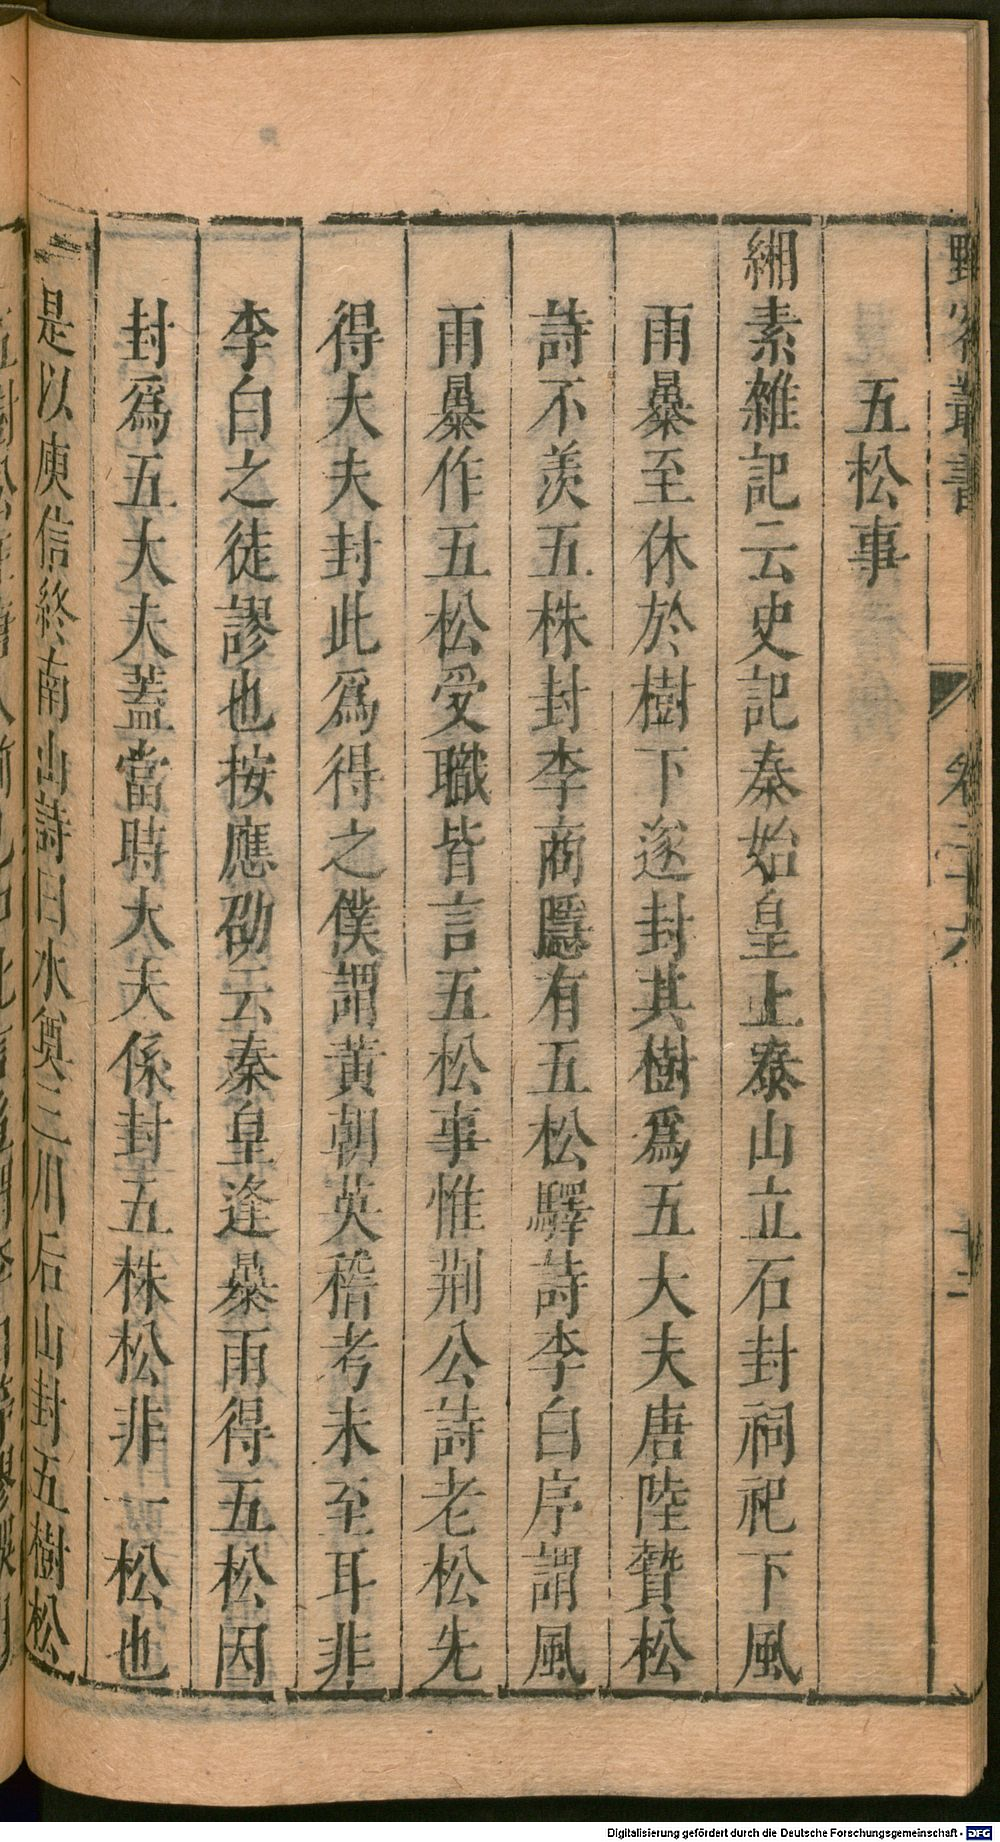 野客叢書 卷二十六 十二
五松事
緗素雜記云史記秦始皇上泰山立石封祠祀下風
雨暴至休於樹下遂封其樹爲五大夫唐陸贄松
詩不羨五株封李商隱有五松驛詩李白序謂風
雨暴作五松受職皆言五松事惟荆公詩老松先
得大夫封此爲得之僕謂黃朝英稽考未至耳非
李白之徒謬也按應劭云秦皇逢暴雨得五松因
封爲五大夫蓋當時大夫係封五株松非一松也
是以庾信終南山詩曰水奠三川后山封五樹松
Digitalisierung gefördert durch die Deutsche Forschungsgemeinschaft - DFG